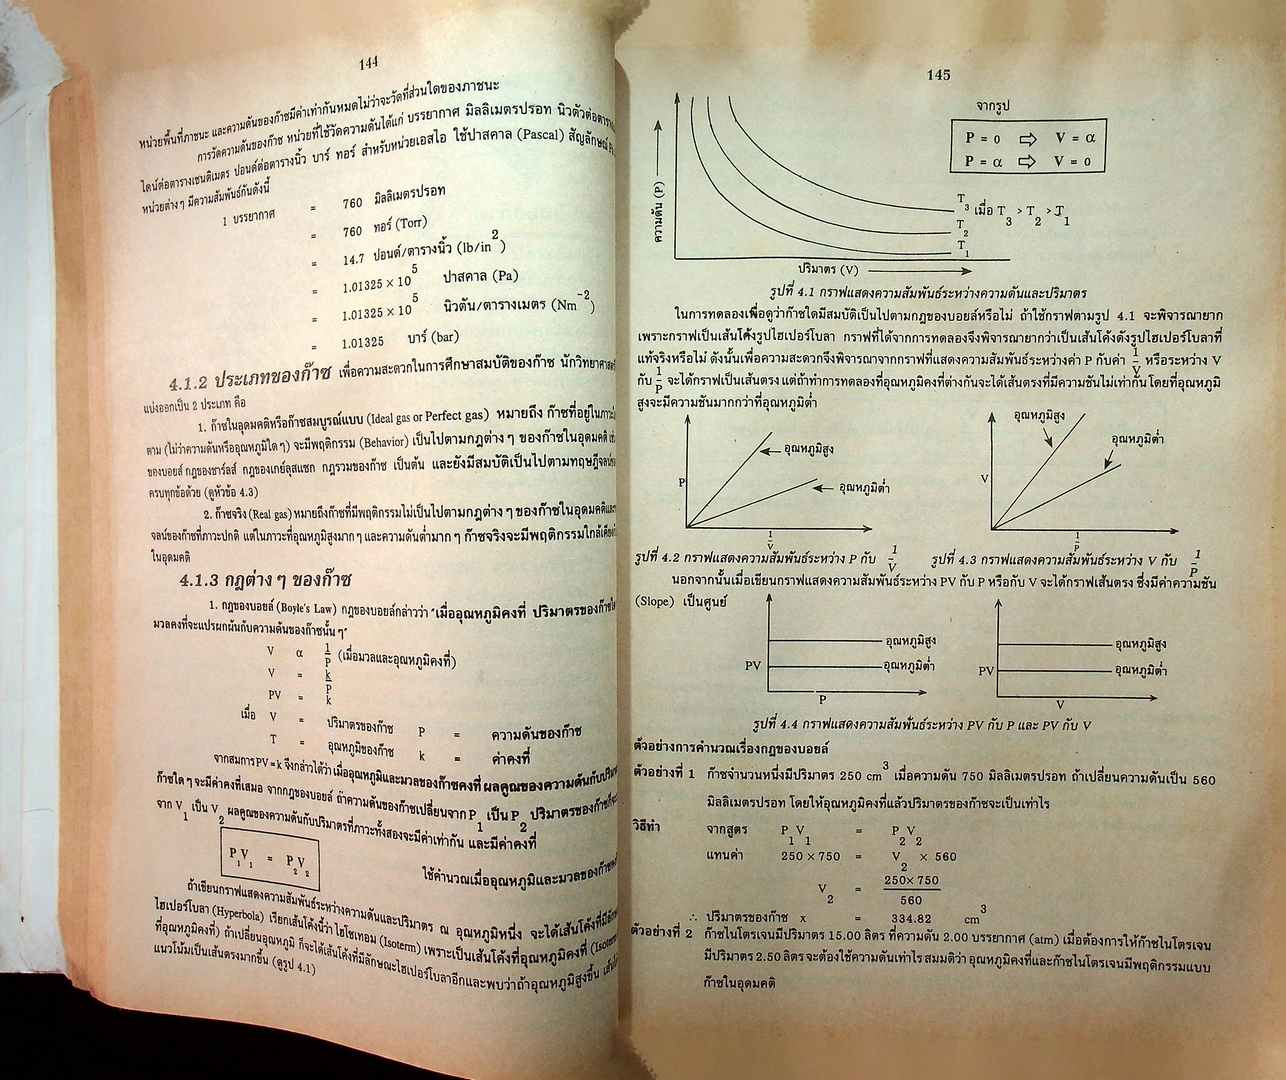 144
หน่วยพื้นที่ภาชนะ และความดันของก๊าซมีค่าเท่ากันหมดไม่ว่าจะวัดที่ส่วนใดของภาชนะ
การวัดความดันของก๊าซ หน่วยที่ใช้วัดความดันได้แก่ บรรยากาศ มิลลิเมตรปรอท นิวตัวต่อตาราง
ไดน์ต่อตารางเซนติเมตร ปอนด์ต่อตารางนิ้ว บาร์ ทอร์ สำหรับหน่วยเอสไอ ใช้ปาสคาล (Pascal) สัญลักษณ์
หน่วยต่างๆ มีความสัมพันธ์กันดังนี้
1 บรรยากาศ = 760 มิลลิเมตรปรอท
= 760 ทอร์ (Torr)
= 14.7 ปอนด์/ตารางนิ้ว (lb/in²)
= 1.01325 × 10⁵ ปาสคาล (Pa)
= 1.01325 × 10⁵ นิวตัน/ตารางเมตร (Nm⁻²)
= 1.01325 บาร์ (bar)
4.1.2 ประเภทของก๊าซ เพื่อความสะดวกในการศึกษาสมบัติของก๊าซ นักวิทยาศาสตร์
แบ่งออกเป็น 2 ประเภท คือ
1. ก๊าซในอุดมคติหรือก๊าซสมบูรณ์แบบ (Ideal gas or Perfect gas) หมายถึง ก๊าซที่อยู่ในภาวะใด
ตาม (ไม่ว่าความดันหรืออุณหภูมิใดๆ) จะมีพฤติกรรม (Behavior) เป็นไปตามกฎต่างๆ ของก๊าซในอุดมคติ เช่น
ของบอยล์ กฎของชาร์ลส์ กฎของเกย์ลุสแซก กฎรวมของก๊าซ เป็นต้น และยังมีสมบัติเป็นไปตามทฤษฎีจลน์
ครบทุกข้อด้วย (ดูหัวข้อ 4.3)
2. ก๊าซจริง (Real gas) หมายถึงก๊าซที่มีพฤติกรรมไม่เป็นไปตามกฎต่างๆ ของก๊าซในอุดมคติและ
จลน์ของก๊าซที่ภาวะปกติ แต่ในภาวะที่อุณหภูมิสูงมากๆ และความดันต่ำมากๆ ก๊าซจริงจะมีพฤติกรรมใกล้เคียง
ในอุดมคติ
4.1.3 กฎต่างๆ ของก๊าซ
1. กฎของบอยล์ (Boyle's Law) กฎของบอยล์กล่าวว่า "เมื่ออุณหภูมิคงที่ ปริมาตรของก๊าซใด
มวลคงที่จะแปรผกผันกับความดันของก๊าซนั้นๆ"
V α 1/P (เมื่อมวลและอุณหภูมิคงที่)
V = k/P
PV = k
เมื่อ V = ปริมาตรของก๊าซ P = ความดันของก๊าซ
T = อุณหภูมิของก๊าซ k = ค่าคงที่
จากสมการ PV = k จึงกล่าวได้ว่า เมื่ออุณหภูมิและมวลของก๊าซคงที่ ผลคูณของความดันกับปริมาตร
ก๊าซใดๆ จะมีค่าคงที่เสมอ จากกฎของบอยล์ ถ้าความดันของก๊าซเปลี่ยนจาก P₁ เป็น P₂ ปริมาตรของก๊าซก็จะ
จาก V₁ เป็น V₂ ผลคูณของความดันกับปริมาตรที่ภาวะทั้งสองจะมีค่าเท่ากัน และมีค่าคงที่
P₁V₁ = P₂V₂
ใช้คำนวณเมื่ออุณหภูมิและมวลของก๊าซ
ถ้าเขียนกราฟแสดงความสัมพันธ์ระหว่างความดันและปริมาตร ณ อุณหภูมิหนึ่ง จะได้เส้นโค้งที่มี
ไฮเปอร์โบลา (Hyperbola) เรียกเส้นโค้งนี้ว่า ไอโซเทอม (Isoterm) เพราะเป็นเส้นโค้งที่อุณหภูมิคงที่ (Isoterm
ที่อุณหภูมิคงที่) ถ้าเปลี่ยนอุณหภูมิ ก็จะได้เส้นโค้งที่มีลักษณะไฮเปอร์โบลาอีกและพบว่าถ้าอุณหภูมิสูงขึ้น
แนวโน้มเป็นเส้นตรงมากขึ้น (ดูรูป 4.1)
145
จากรูป
P = 0 ⇨ V = α
P = α ⇨ V = 0
ความดัน (P)
T₃ เมื่อ T₃ > T₂ > T₁
T₂
T₁
ปริมาตร (V)
รูปที่ 4.1 กราฟแสดงความสัมพันธ์ระหว่างความดันและปริมาตร
ในการทดลองเพื่อดูว่าก๊าซใดมีสมบัติเป็นไปตามกฎของบอยล์หรือไม่ ถ้าใช้กราฟตามรูป 4.1 จะพิจารณายาก
เพราะกราฟเป็นเส้นโค้งรูปไฮเปอร์โบลา กราฟที่ได้จากการทดลองจึงพิจารณายากว่าเป็นเส้นโค้งดังรูปไฮเปอร์โบลาที่
แท้จริงหรือไม่ ดังนั้นเพื่อความสะดวกจึงพิจารณาจากกราฟที่แสดงความสัมพันธ์ระหว่างค่า P กับค่า 1/V หรือระหว่าง V
กับ 1/P จะได้กราฟเป็นเส้นตรง แต่ถ้าทำการทดลองที่อุณหภูมิคงที่ต่างกันจะได้เส้นตรงที่มีความชันไม่เท่ากัน โดยที่อุณหภูมิ
สูงจะมีความชันมากกว่าที่อุณหภูมิต่ำ
P อุณหภูมิสูง อุณหภูมิต่ำ 1/V
V อุณหภูมิสูง อุณหภูมิต่ำ 1/P
รูปที่ 4.2 กราฟแสดงความสัมพันธ์ระหว่าง P กับ 1/V
รูปที่ 4.3 กราฟแสดงความสัมพันธ์ระหว่าง V กับ 1/P
นอกจากนั้นเมื่อเขียนกราฟแสดงความสัมพันธ์ระหว่าง PV กับ P หรือกับ V จะได้กราฟเส้นตรง ซึ่งมีค่าความชัน
(Slope) เป็นศูนย์
PV อุณหภูมิสูง อุณหภูมิต่ำ P
PV อุณหภูมิสูง อุณหภูมิต่ำ V
รูปที่ 4.4 กราฟแสดงความสัมพันธ์ระหว่าง PV กับ P และ PV กับ V
ตัวอย่างการคำนวณเรื่องกฎของบอยล์
ตัวอย่างที่ 1 ก๊าซจำนวนหนึ่งมีปริมาตร 250 cm³ เมื่อความดัน 750 มิลลิเมตรปรอท ถ้าเปลี่ยนความดันเป็น 560
มิลลิเมตรปรอท โดยให้อุณหภูมิคงที่แล้วปริมาตรของก๊าซจะเป็นเท่าไร
วิธีทำ จากสูตร P₁V₁ = P₂V₂
แทนค่า 250 × 750 = V₂ × 560
V₂ = 250× 750/560
∴ ปริมาตรของก๊าซ x = 334.82 cm³
ตัวอย่างที่ 2 ก๊าซไนโตรเจนมีปริมาตร 15.00 ลิตร ที่ความดัน 2.00 บรรยากาศ (atm) เมื่อต้องการให้ก๊าซไนโตรเจน
มีปริมาตร 2.50 ลิตร จะต้องใช้ความดันเท่าไร สมมติว่า อุณหภูมิคงที่และก๊าซไนโตรเจนมีพฤติกรรมแบบ
ก๊าซในอุดมคติ